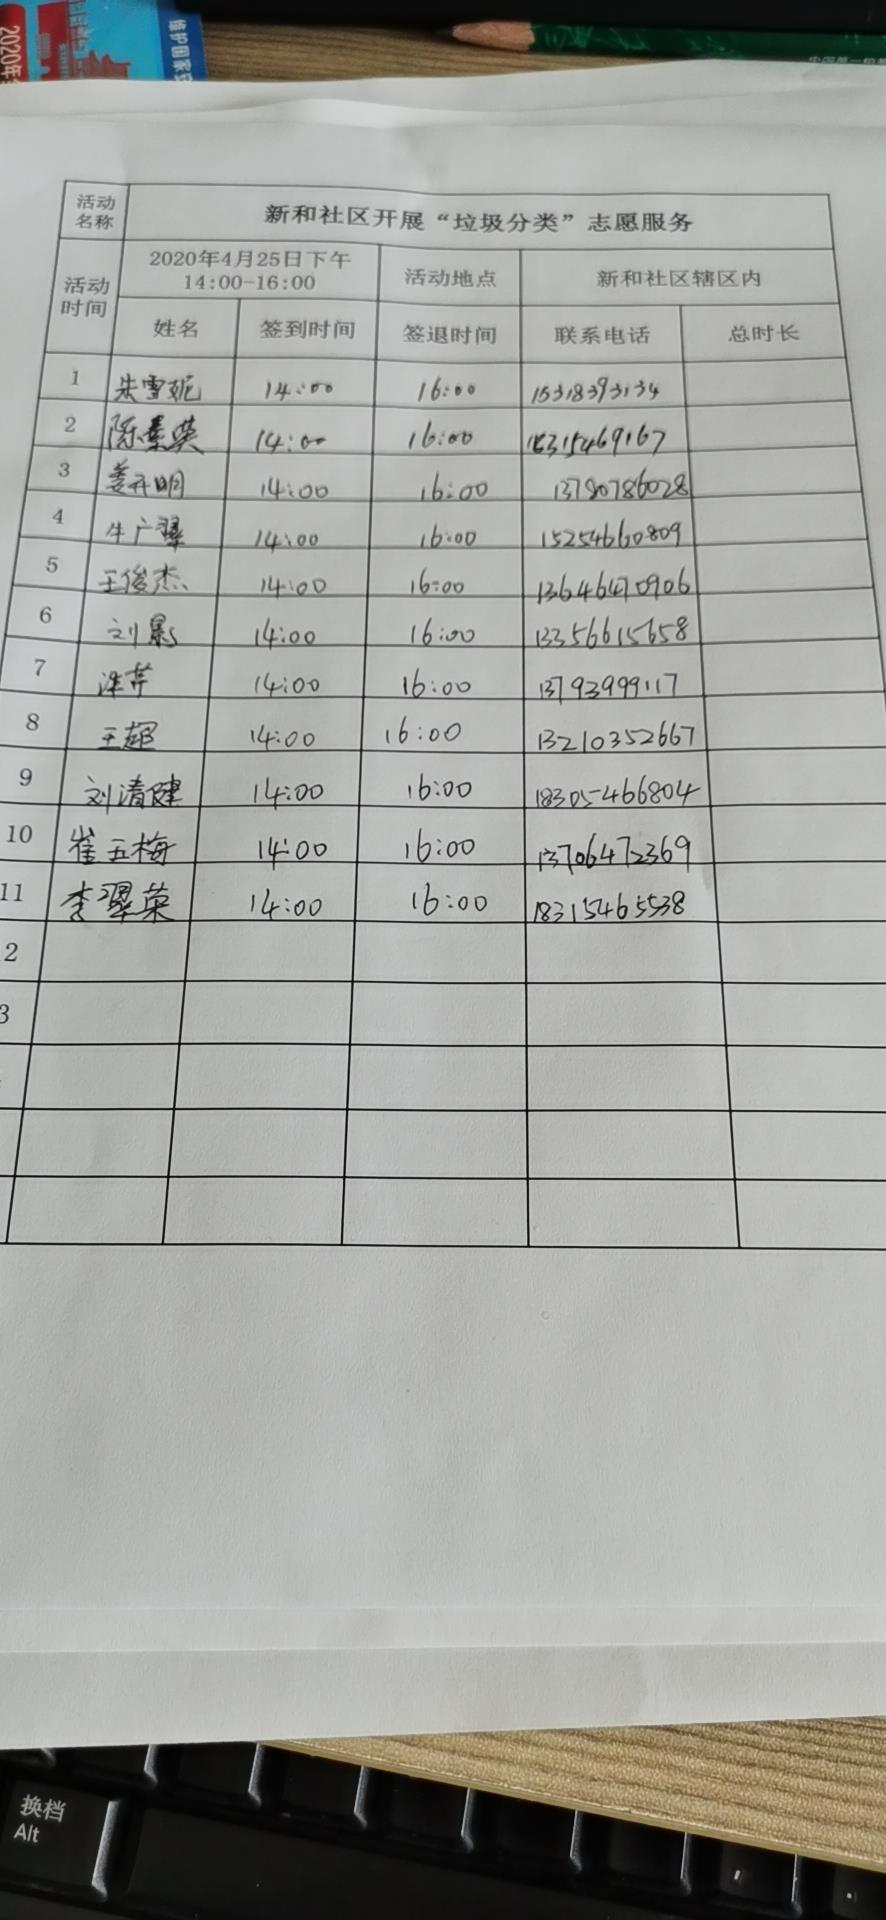 2020年
维护国家安
活动名称 新和社区开展“垃圾分类”志愿服务
活动时间 2020年4月25日下午 14:00-16:00 活动地点 新和社区辖区内
姓名 签到时间 签退时间 联系电话 总时长
1 朱雪妮 14:00 16:00 15318393134
2 陈景英 14:00 16:00 15315469167
3 姜开明 14:00 16:00 13780786028
4 牛广翠 14:00 16:00 15254660809
5 王俊杰 14:00 16:00 13646470906
6 刘影 14:00 16:00 13356615658
7 14:00 16:00 13793999117
8 王超 14:00 16:00 13210352667
9 刘清健 14:00 16:00 18305466804
10 崔玉梅 14:00 16:00 13706472369
11 李翠英 14:00 16:00 18315465538
2
3
换档
Alt